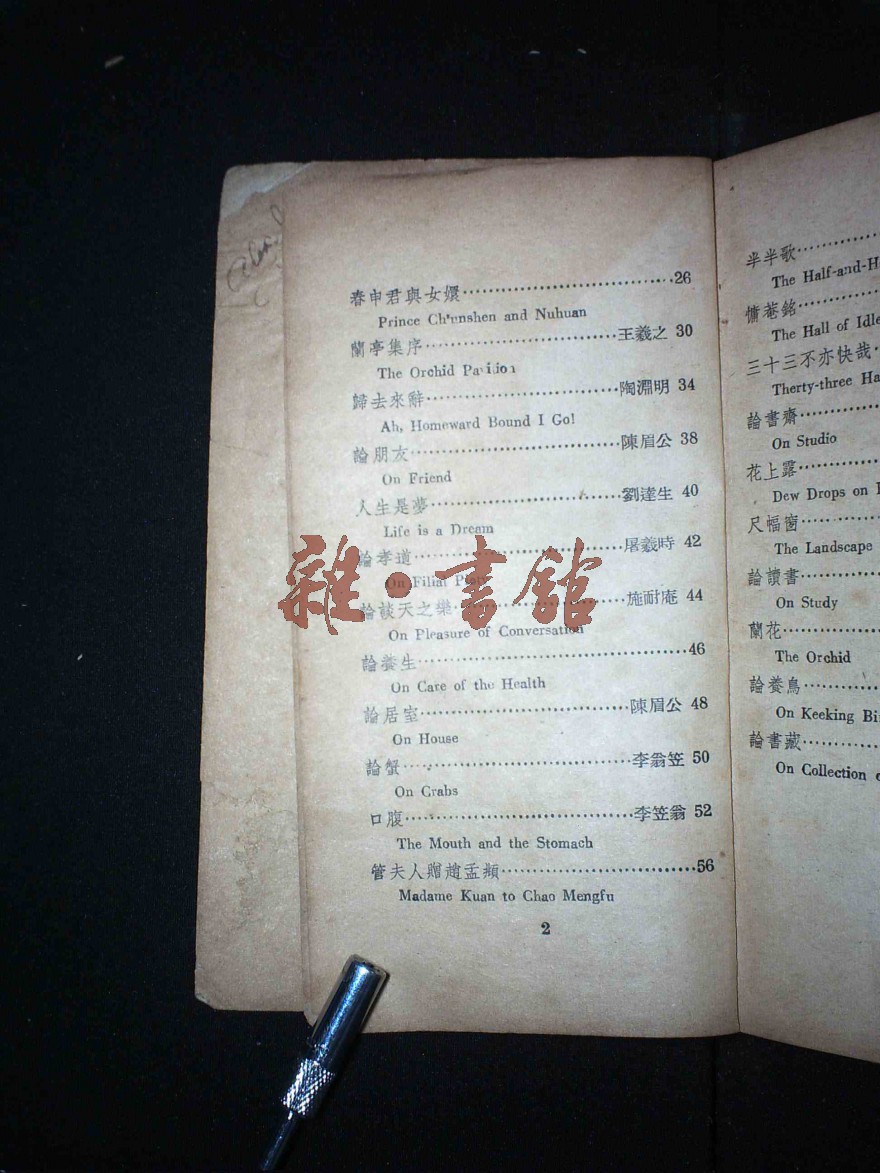 春申君與女嬛……26
Prince Ch'unshen and Nuhuan
蘭亭集序……王羲之 30
The Orchid Pavilion
歸去來辭……陶淵明 34
Ah, Homeward Bound I Go!
論朋友……陳眉公 38
On Friend
人生是夢……劉達生 40
Life is a Dream
論孝道……屠羲時 42
On Filial Piety
論談天之樂……施耐庵 44
On Pleasure of Conversation
論養生……46
On Care of the Health
論居室……陳眉公 48
On House
論蟹……李翁笠 50
On Crabs
口腹……李笠翁 52
The Mouth and the Stomach
管夫人贈趙孟頫……56
Madame Kuan to Chao Mengfu
2
半半歌……
The Half-and-H
慵菴銘……
The Hall of Idle
三十三不亦快哉
Therty-three Ha
論書齋……
On Studio
花上露……
Dew Drops on
尺幅窗……
The Landscape
論讀書……
On Study
蘭花……
The Orchid
論養鳥……
On Keeking Bi
論書藏……
On Collection
雜·書館